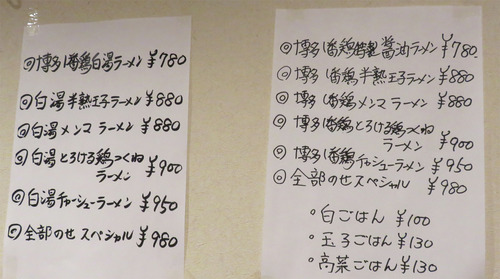 ◎博多一番鶏白湯ラーメン ¥780
◎白湯半熟玉子ラーメン ¥880
◎白湯メンマ ラーメン ¥880
◎白湯とろける鶏つくね
ラーメン ¥900
◎白湯チャーシューラーメン ¥950
◎全部のせスペシャル ¥980
◎博多一番鶏特製醤油ラーメン ¥780
◎博多一番鶏半熟玉子ラーメン ¥880
◎博多一番鶏メンマ ラーメン ¥880
◎博多一番鶏とろける鶏つくね
ラーメン ¥900
◎博多一番鶏チャーシューラーメン ¥950
◎全部のせスペシャル ¥980
○白ごはん ¥100
○玉子ごはん ¥130
○高菜ごはん ¥130